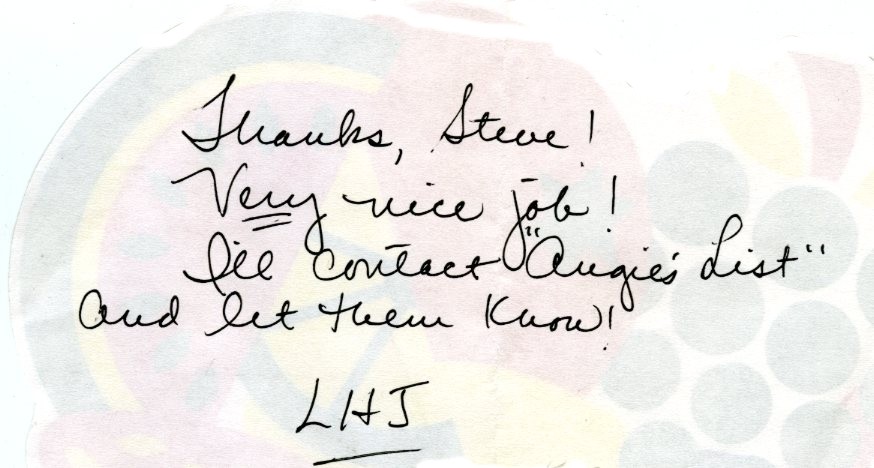 Thanks, Steve!
Very nice job!
I'll contact "Angie's List"
and let them know!
LHJ